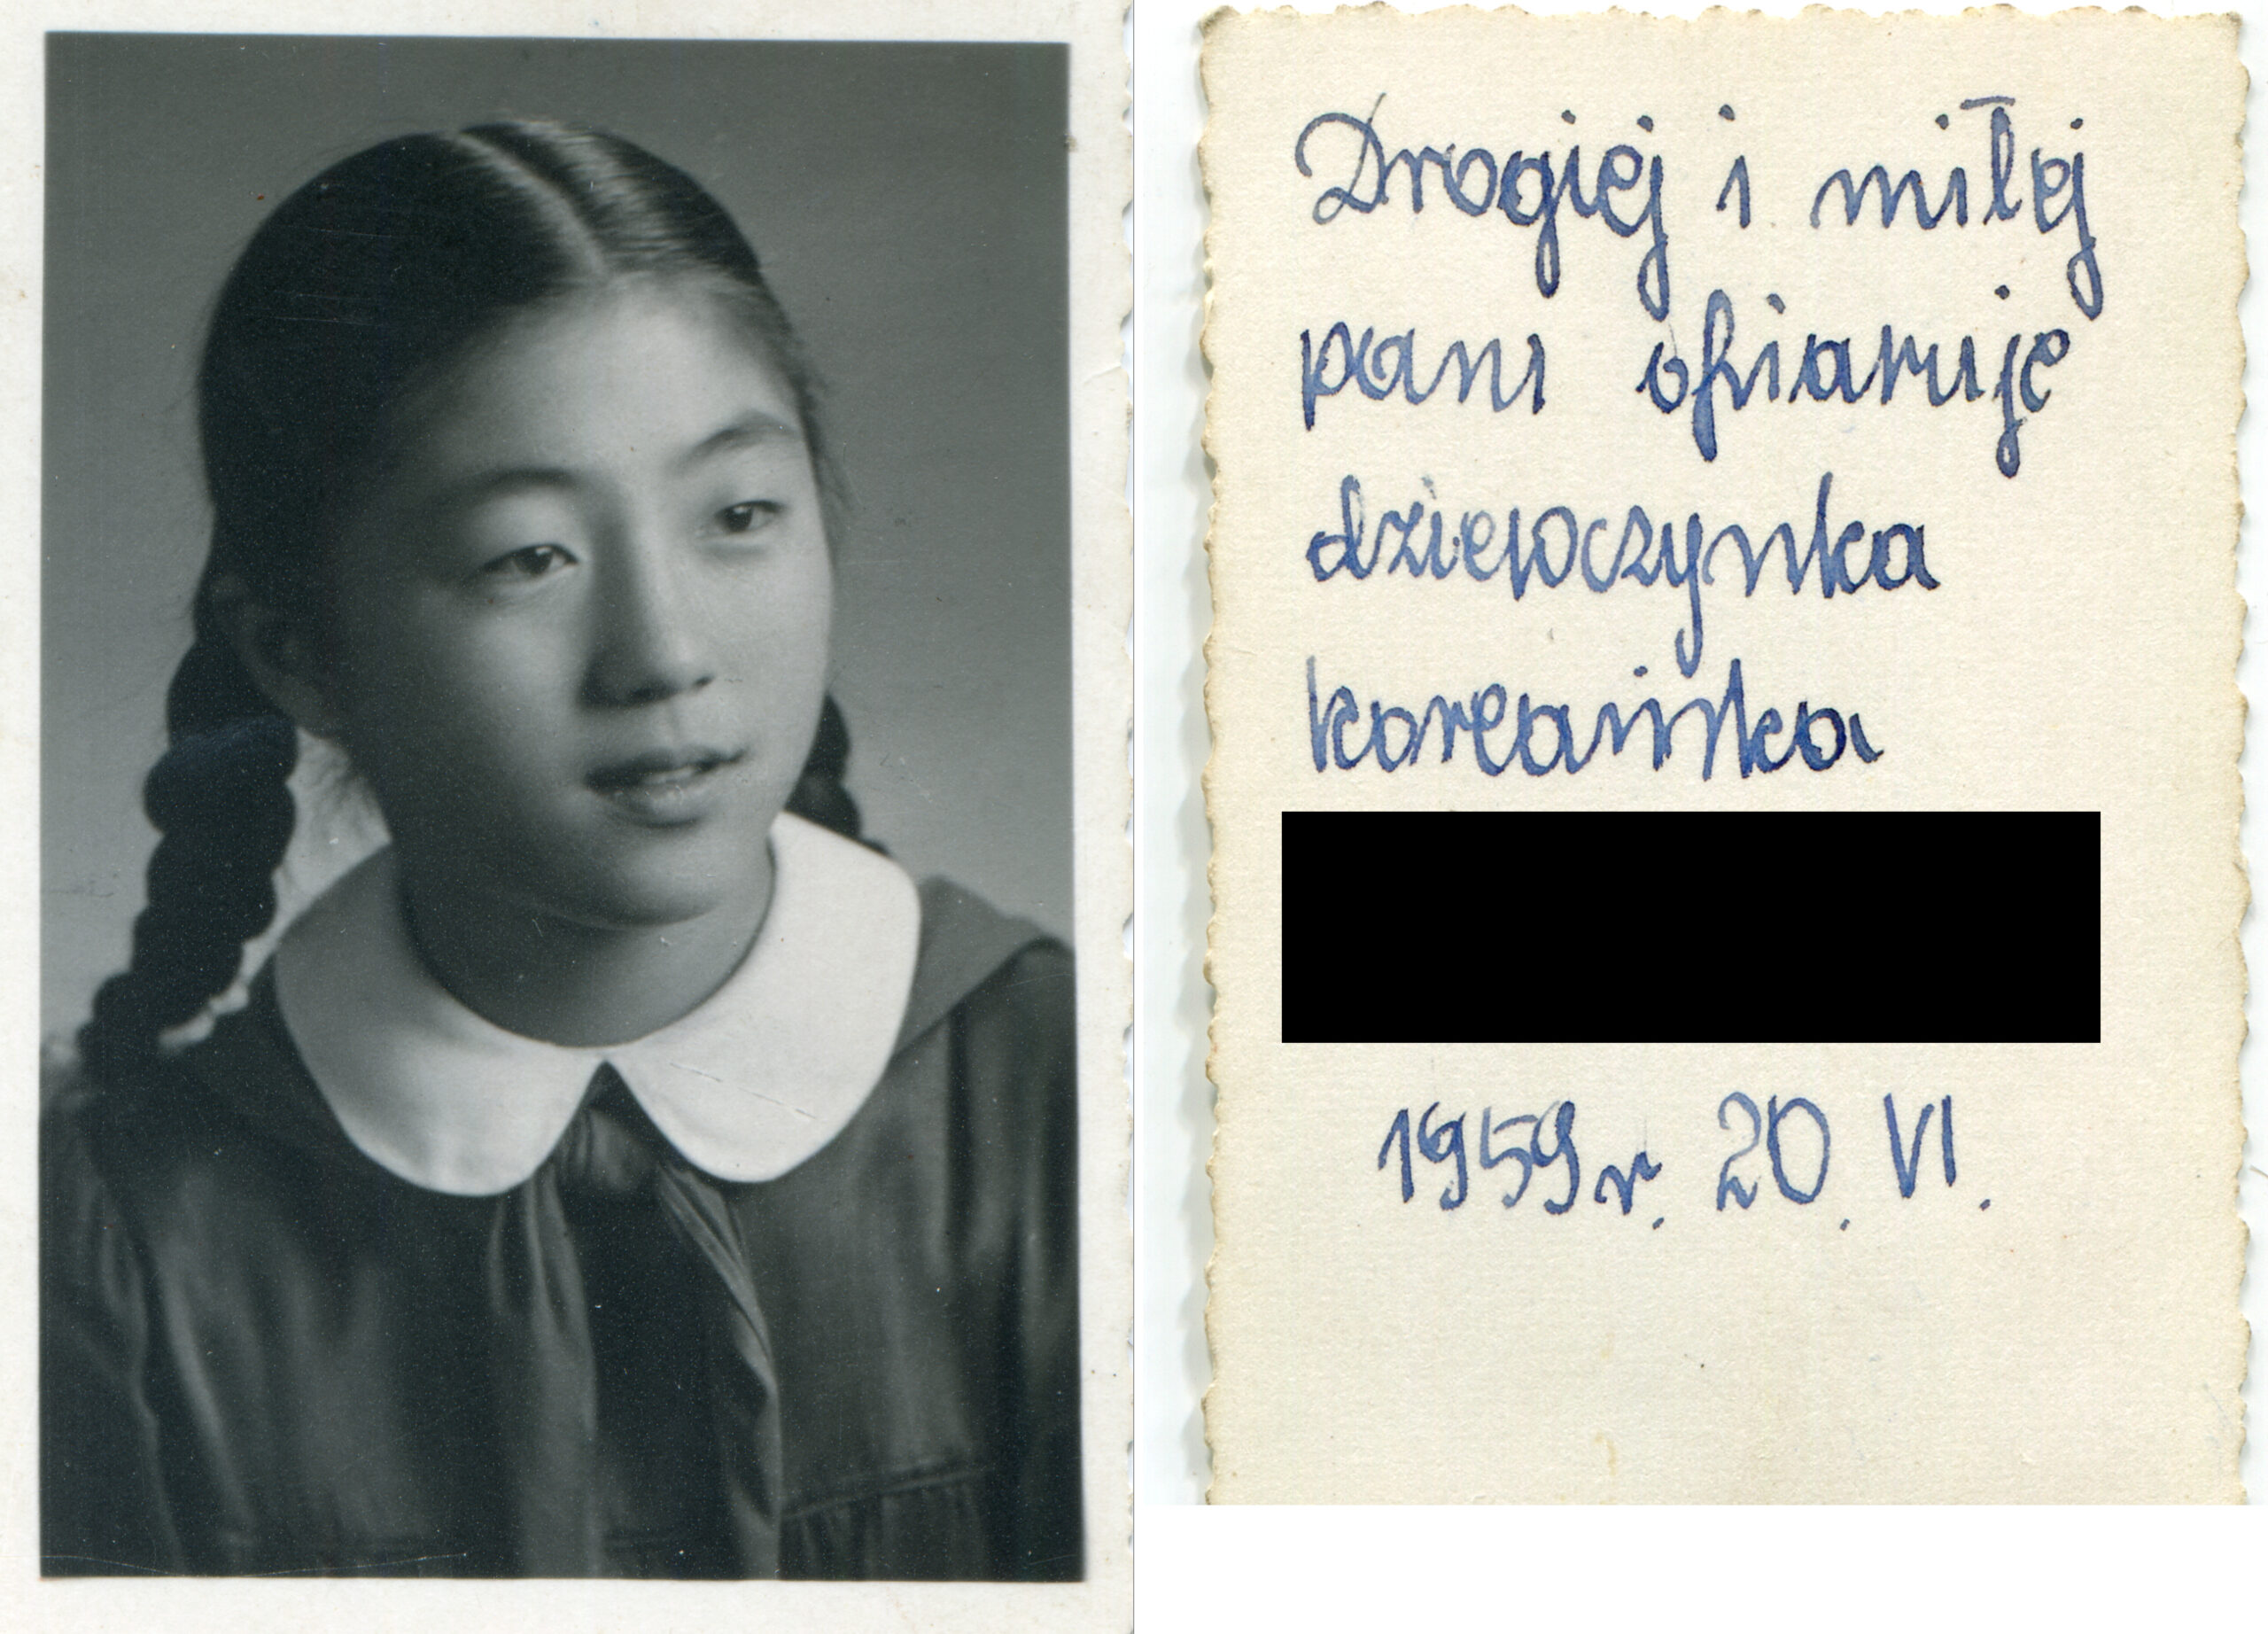 Drogiej i miłej
pani ofiaruje
dziewczynka
koreańska
1959 r. 20. VI.